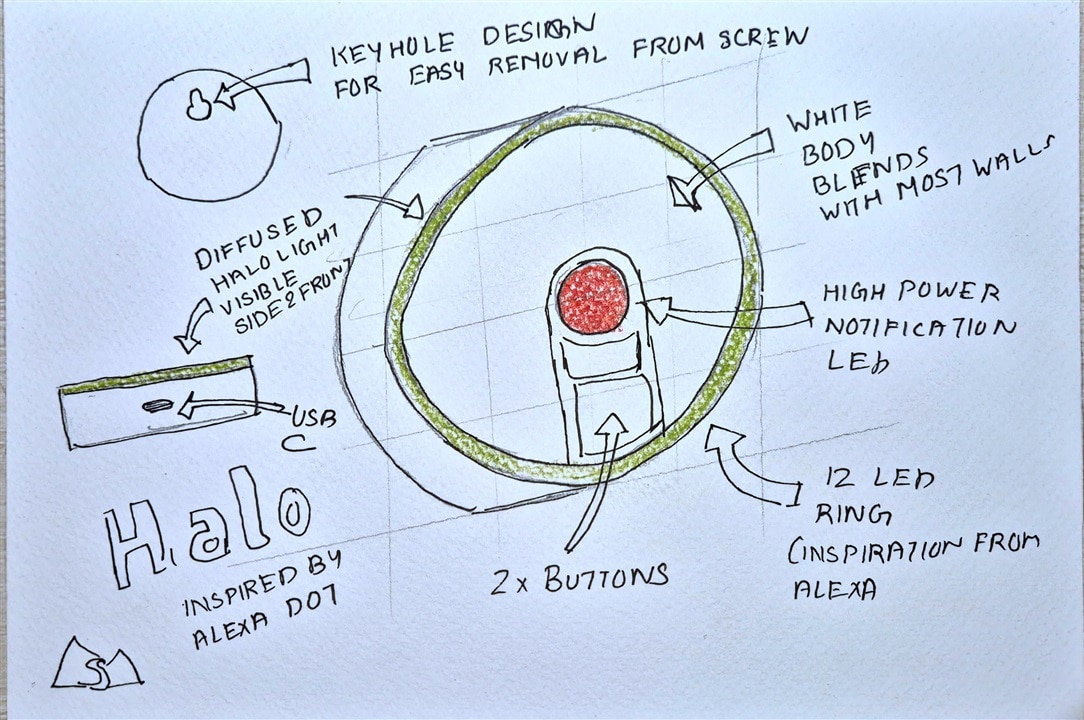 KEYHOLE DESIGN
FOR EASY REMOVAL FROM SCREW
WHITE
BODY
BLENDS
WITH MOST WALLS
DIFFUSED
HALO LIGHT
VISIBLE
SIDE & FRONT
HIGH POWER
NOTIFICATION
LED
USB
C
Halo
INSPIRED BY
ALEXA DOT
2x BUTTONS
12 LED
RING
(INSPIRATION FROM
ALEXA
SS